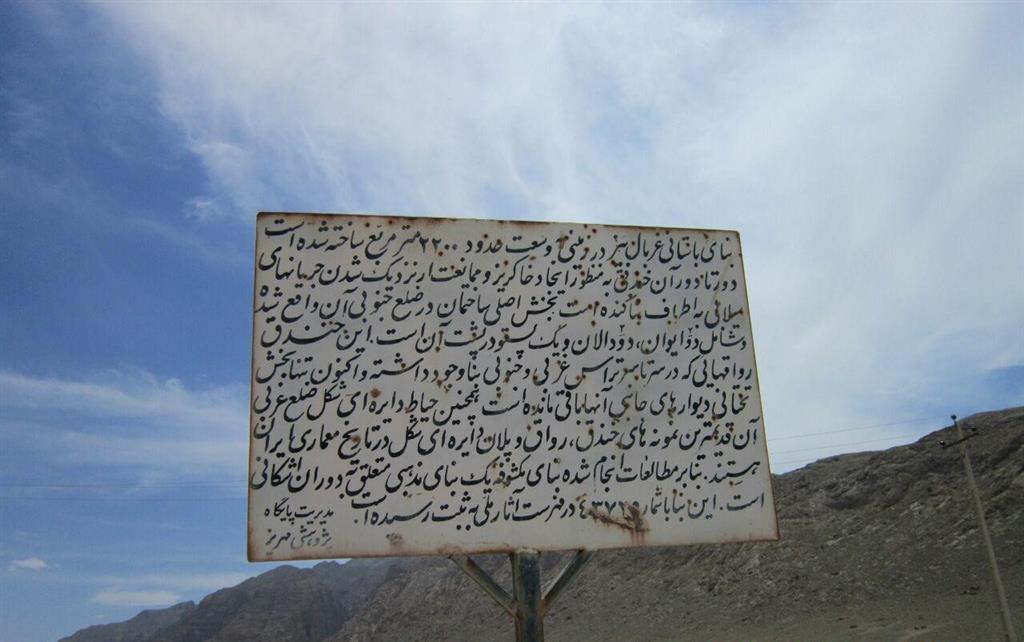 بنای باستانی غربال بیز در زمینی به وسعت حدود ۲۲۰۰ متر مربع ساخته شده است
دور تا دور آن خندقی به منظور ایجاد خاکریز و ممانعت از نزدیک شدن جریانهای
سیلابی به اطراف بنا کنده است بخش اصلی ساختمان در ضلع جنوبی آن واقع شده
و شامل دو ایوان، دو دالان و یک پستو در پشت آن است. این خندق
رواقهایی که در سرتاسر تراس غربی و جنوبی بنا وجود داشته و اکنون تنها بخش
تحتانی دیوارهای جانبی آنها باقی مانده است همچنین حیاط دایره ای شکل ضلع غربی
آن قدیمترین نمونه های خندق، رواق و پلان دایره ای شکل در تاریخ معماری ایران
هستند. بنابر مطالعات انجام شده بنای مکشوفه یک بنای مذهبی متعلق به دوران اشکانی
است. این بنا با شماره در فهرست آثار ملی به ثبت رسیده است.
مدیریت پایگاه
پژوهشی مهریز